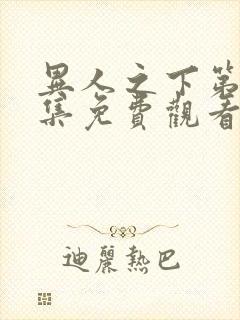 異人之下第
集免費觀看
迪麗熱巴